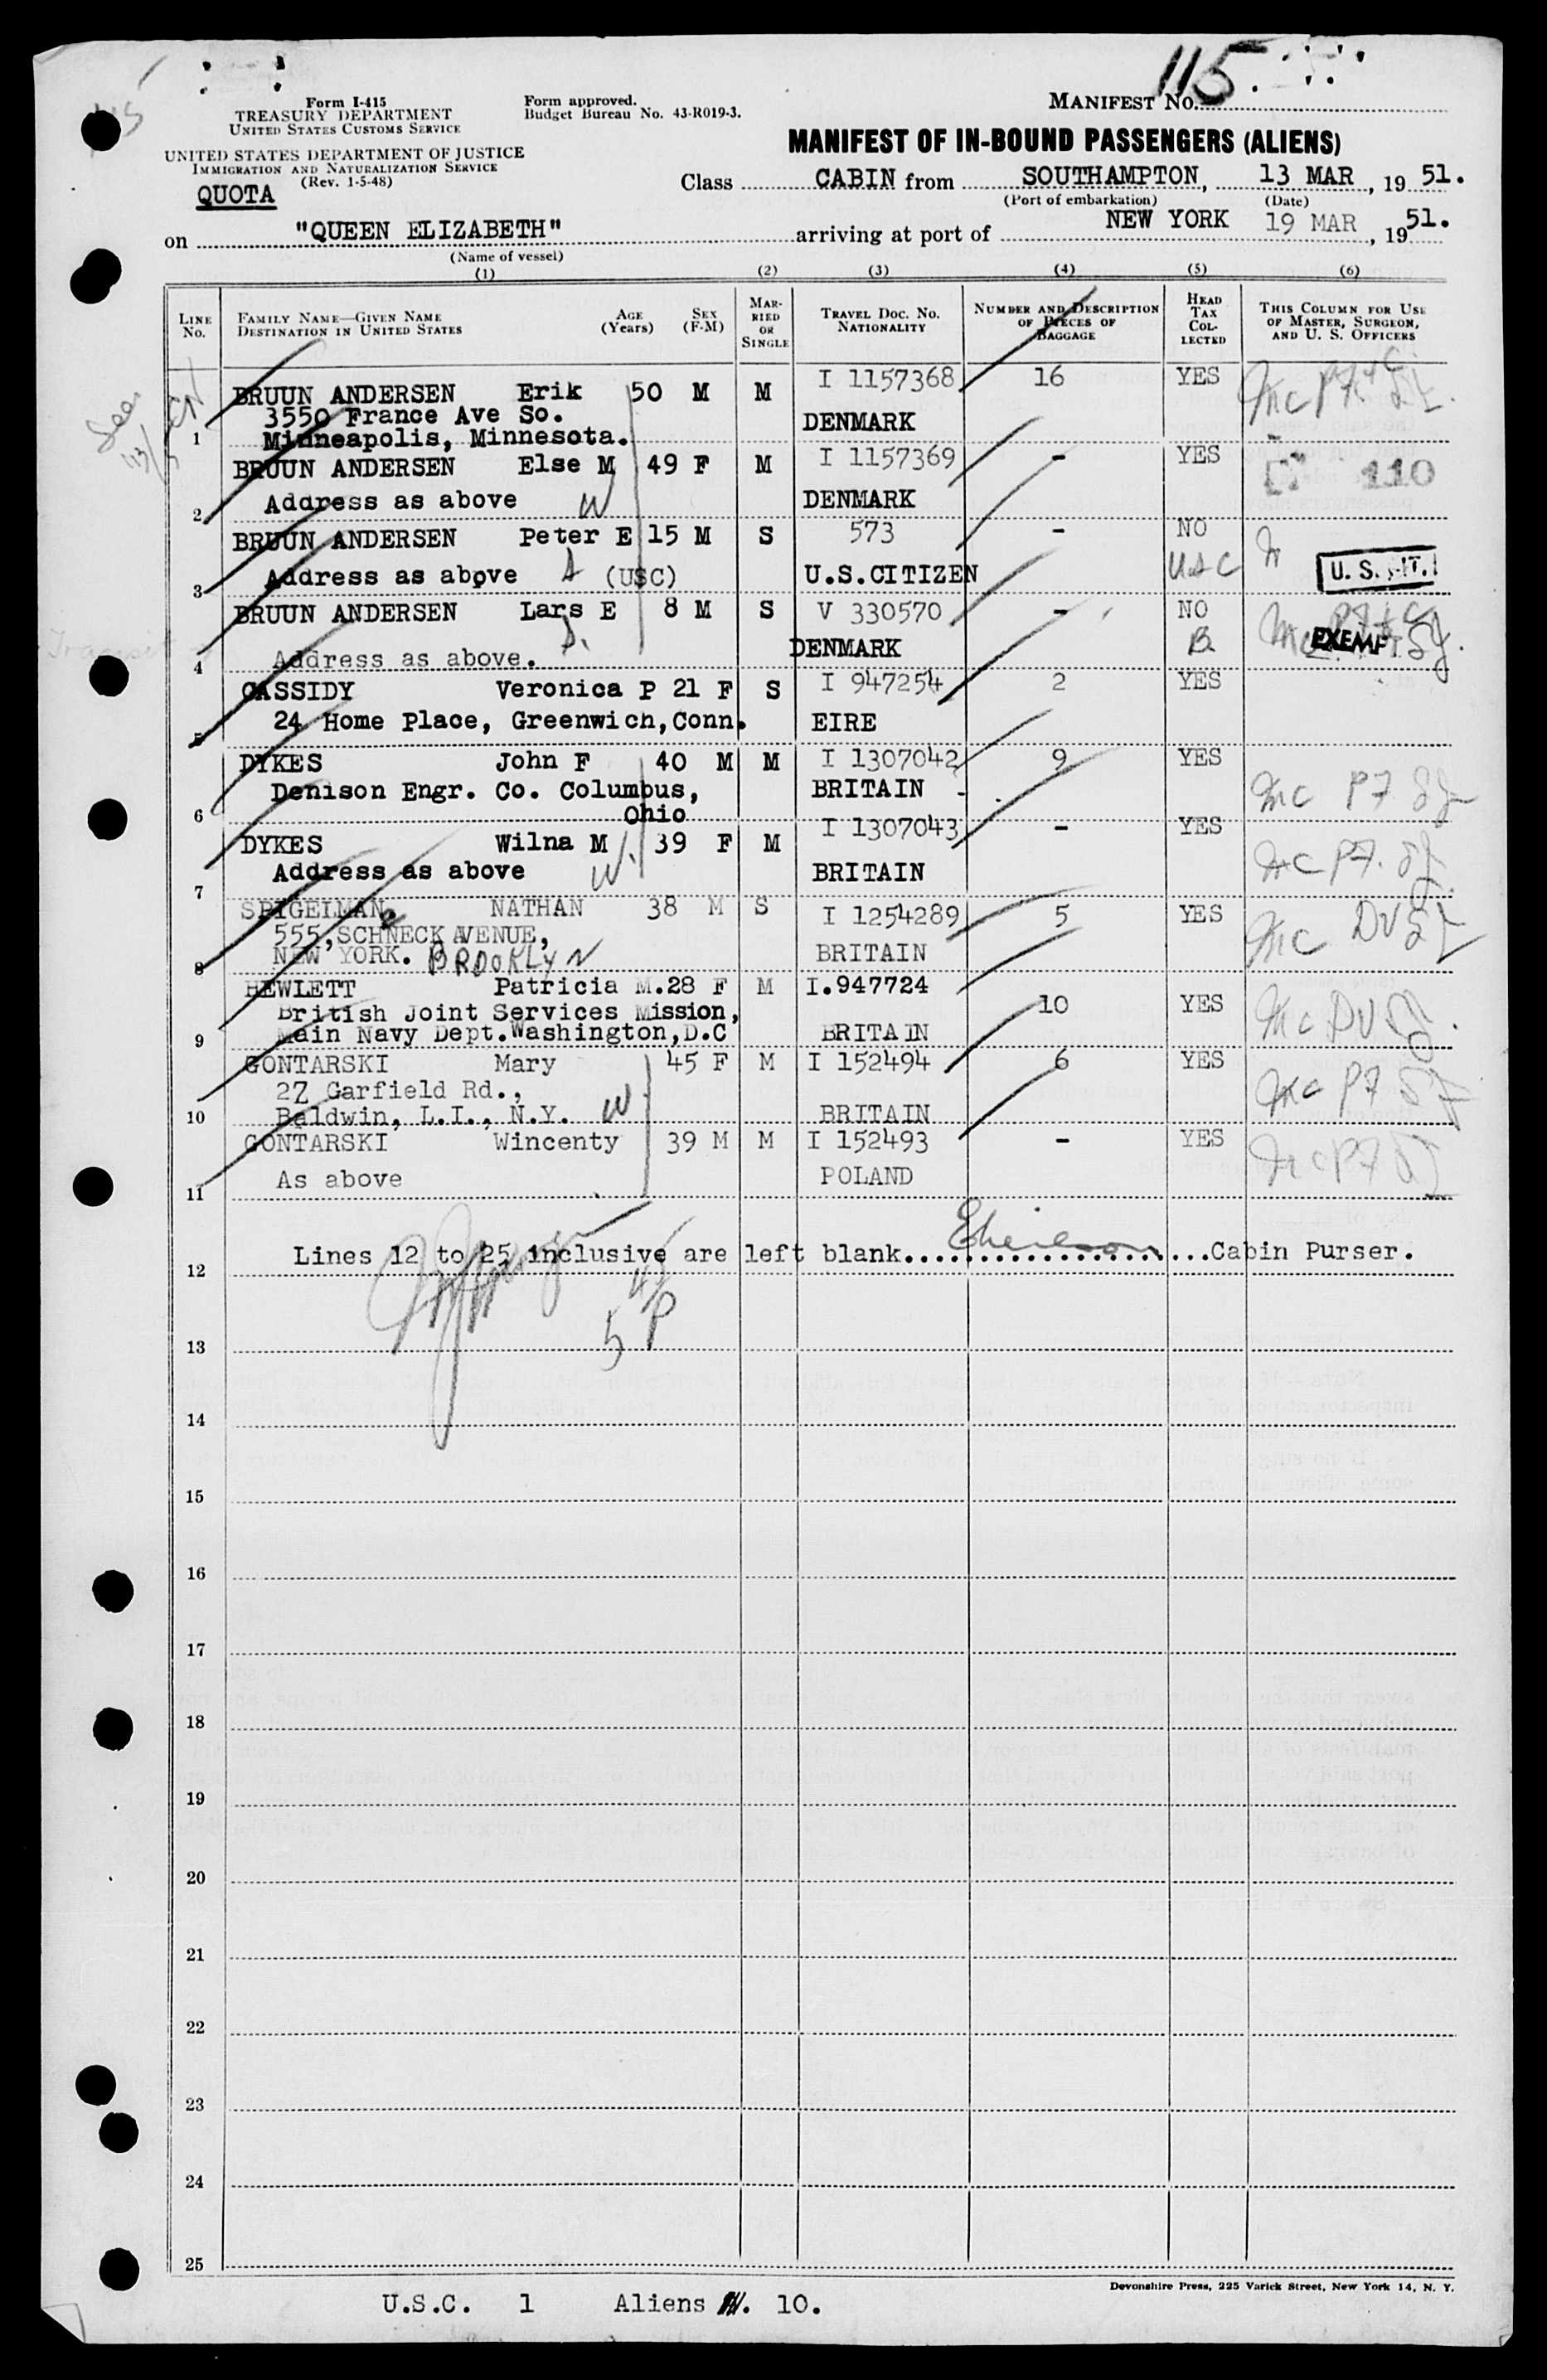 115.
Form I-415
TREASURY DEPARTMENT
UNITED STATES CUSTOMS SERVICE
Form approved.
Budget Bureau No. 43-R019-3.
MANIFEST NO.
UNITED STATES DEPARTMENT OF JUSTICE
IMMIGRATION AND NATURALIZATION SERVICE
(Rev. 1-5-48)
QUOTA
MANIFEST OF IN-BOUND PASSENGERS (ALIENS)
Class CABIN from SOUTHAMPTON, 13 MAR, 19 51.
(Port of embarkation) (Date)
on "QUEEN ELIZABETH" arriving at port of NEW YORK 19 MAR, 19 51.
(Name of vessel)
(1) (2) (3) (4) (5) (6)
LINE No. FAMILY NAME—GIVEN NAME DESTINATION IN UNITED STATES AGE (Years) SEX (F-M) MARRIED OR SINGLE TRAVEL DOC. NO. NATIONALITY NUMBER AND DESCRIPTION OF PIECES OF BAGGAGE HEAD TAX COLLECTED THIS COLUMN FOR USE OF MASTER, SURGEON, AND U. S. OFFICERS
BRUUN ANDERSEN Erik 50 M M I 1157368 16 YES
3550 France Ave So. DENMARK
1 Minneapolis, Minnesota.
BRUUN ANDERSEN Else M 49 F M I 1157369 - YES
110
2 Address as above W DENMARK
BRUUN ANDERSEN Peter E 15 M S 573 - NO
3 Address as above (USC) U.S.CITIZEN USC U. S. CIT.
BRUUN ANDERSEN Lars E 8 M S V 330570 - NO
4 Address as above. DENMARK B. EXEMPT
CASSIDY Veronica P 21 F S I 947254 2 YES
5 24 Home Place, Greenwich,Conn. EIRE
DYKES John F 40 M M I 1307042 9 YES
Denison Engr. Co. Columbus, BRITAIN
6 Ohio
DYKES Wilna M 39 F M I 1307043 - YES
7 Address as above W. BRITAIN
SPIGELMAN NATHAN 38 M S I 1254289 5 YES
555,SCHNECK AVENUE,
8 NEW YORK. BROOKLYN BRITAIN
HEWLETT Patricia M.28 F M I.947724
British Joint Services Mission, 10 YES
9 Main Navy Dept.Washington,D.C BRITAIN
GONTARSKI Mary 45 F M I 152494 6 YES
27 Garfield Rd.,
10 Baldwin, L.I., N.Y. W BRITAIN
GONTARSKI Wincenty 39 M M I 152493 - YES
11 As above POLAND
12 Lines 12 to 25 inclusive are left blank.....................Cabin Purser.
13
14
15
16
17
18
19
20
21
22
23
24
25
Devonshire Press, 225 Varick Street, New York 14, N. Y.
U.S.C. 1 Aliens 10.